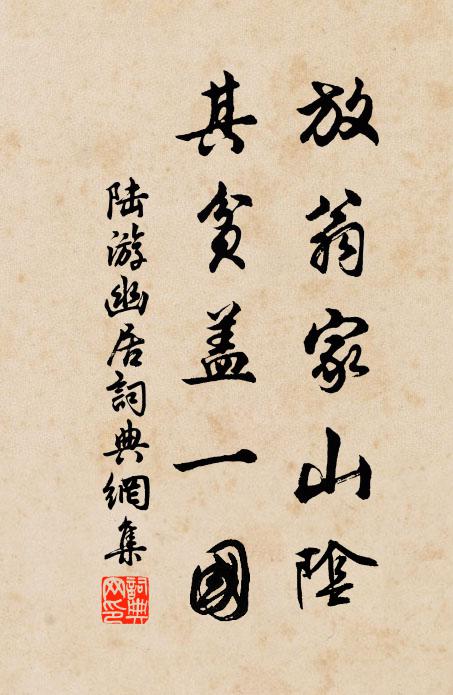 放翁家山陰
其貧蓋一國
陸游幽居詞典網集
詞典